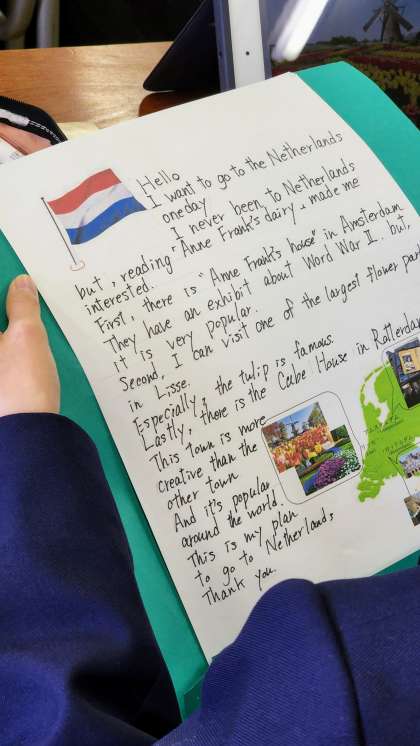 Hello
I want to go to the Netherlands
oneday
I never been, to Netherlands
but, reading "Anne Frank's dairy, made me
interested.
First, there is "Anne Frank's house" in Amsterdam
They have an exhibit about Word War II.. but,
it is very popular.
Second, I can visit one of the largest flower par
in Lisse.
Especially, the tulip is famous.
Lastly, there is the Cube House in Rotterdam
This town is more
creative than the
other town
And it's popular
around the world.
This is my plan
to go to Netherlands
Thank you.